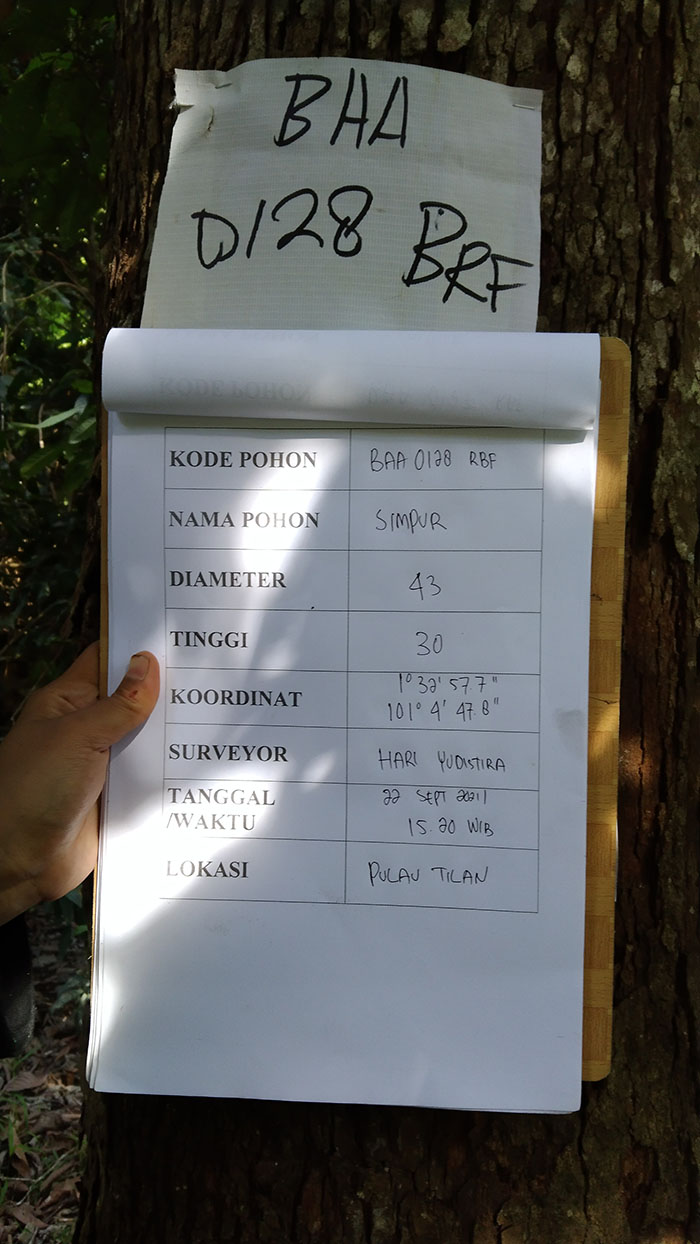 BAA
0128 BRF
KODE POHON BAA 0128 RBF
NAMA POHON SIMPUR
DIAMETER 43
TINGGI 30
KOORDINAT 1° 32' 57.7"
101° 4' 47.8"
SURVEYOR HARI YUDISTIRA
TANGGAL 22 SEPT 2021
/WAKTU 15.20 WIB
LOKASI PULAU TILAN